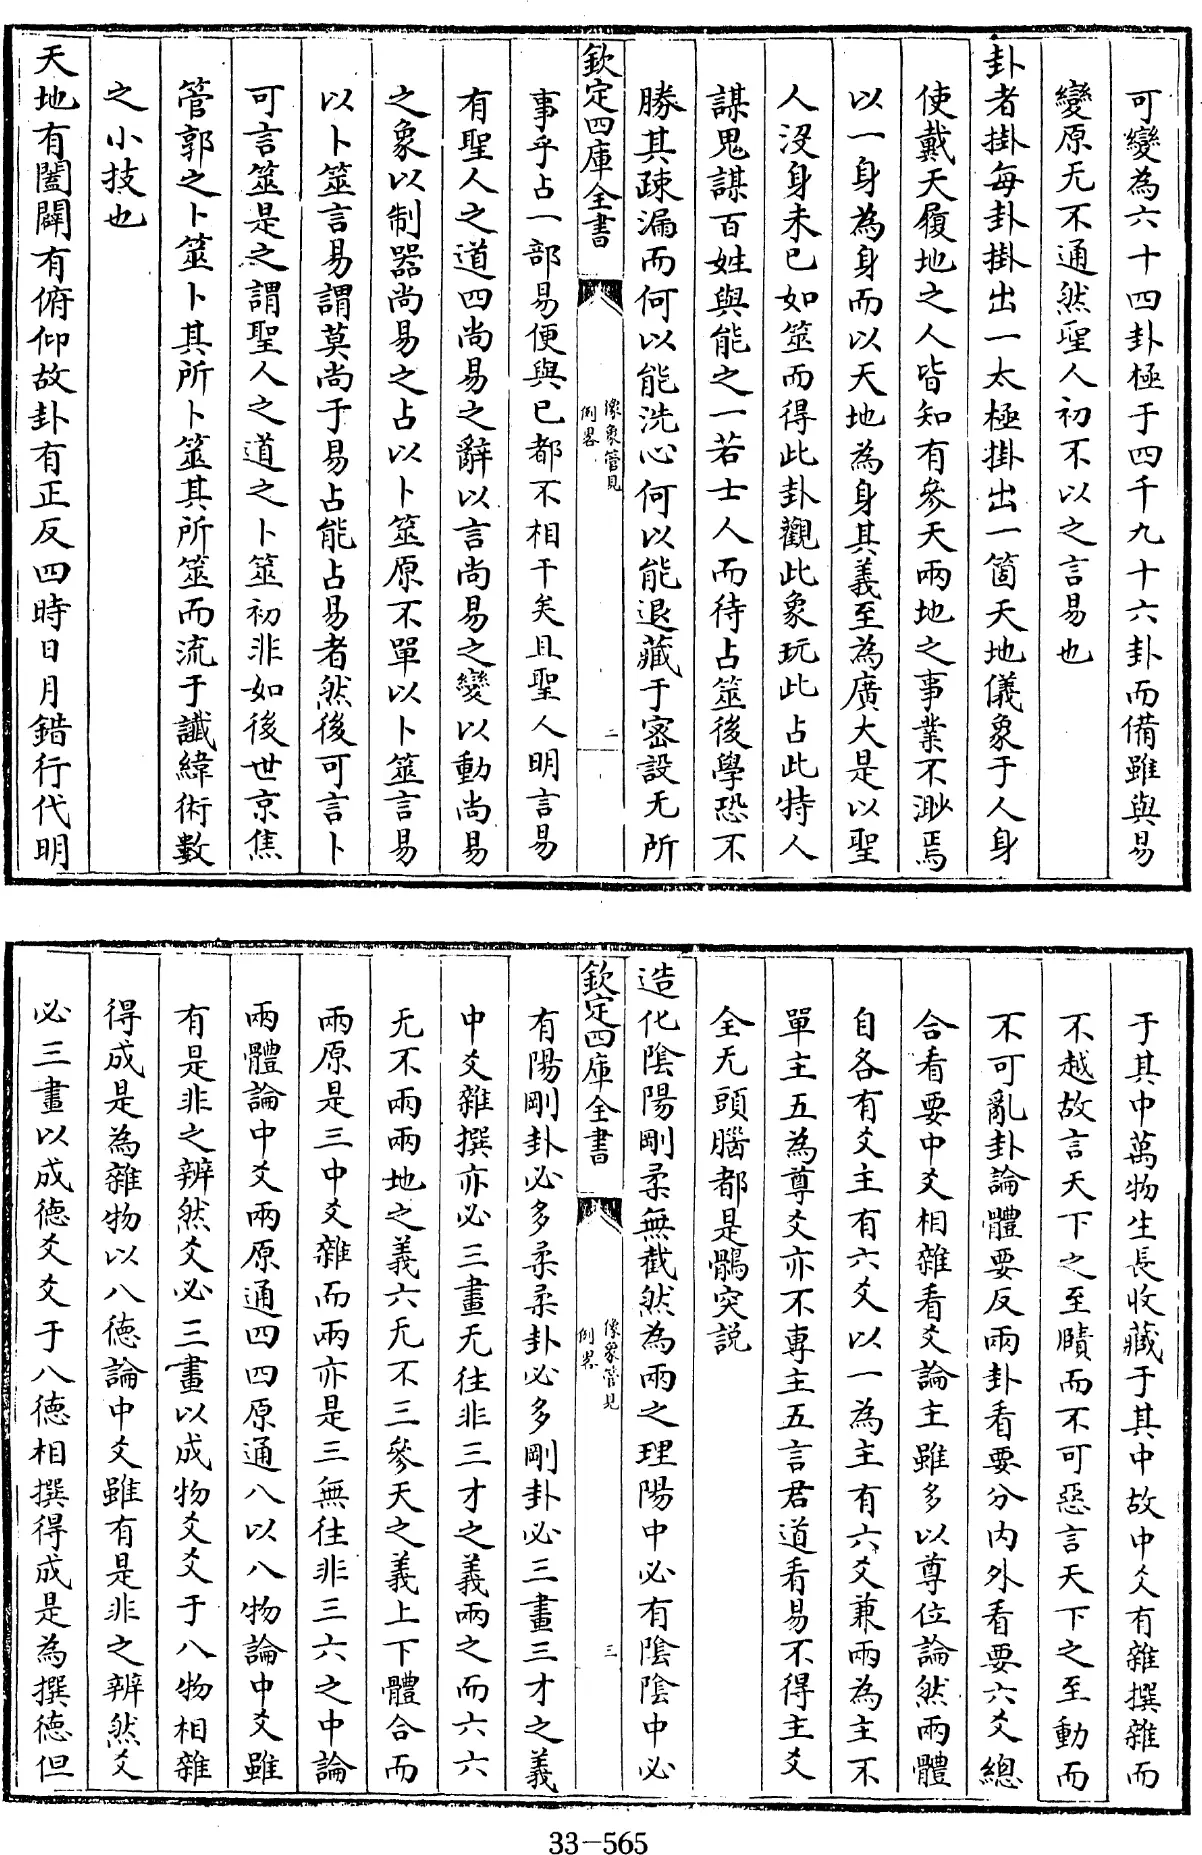 可變為六十四卦極于四千九十六卦而備雖與易
變原无不通然聖人初不以之言易也
卦者掛每卦掛出一太極掛出一箇天地儀象于人身
使戴天履地之人皆知有參天兩地之事業不渺焉
以一身為身而以天地為身其義至為廣大是以聖
人沒身未已如筮而得此卦觀此象玩此占此特人
謀鬼謀百姓與能之一若士人而待占筮後學恐不
勝其疎漏而何以能洗心何以能退藏于密設无所
欽定四庫全書
像象管見
例畧
二
事乎占一部易便與已都不相干矣且聖人明言易
有聖人之道四尚易之辭以言尚易之變以動尚易
之象以制器尚易之占以卜筮原不單以卜筮言易
以卜筮言易謂莫尚于易占能占易者然後可言卜
可言筮是之謂聖人之道之卜筮初非如後世京焦
管郭之卜筮卜其所卜筮其所筮而流于讖緯術數
之小技也
天地有闔闢有俯仰故卦有正反四時日月錯行代明
于其中萬物生長收藏于其中故中爻有雜撰雜而
不越故言天下之至賾而不可惡言天下之至動而
不可亂卦論體要反兩卦看要分內外看要六爻總
合看要中爻相雜看爻論主雖多以尊位論然兩體
自各有爻主有六爻以一為主有六爻兼兩為主不
單主五為尊爻亦不專主五言君道看易不得主爻
全无頭腦都是鶻突説
造化陰陽剛柔無截然為兩之理陽中必有陰陰中必
欽定四庫全書
像象管見
例畧
三
有陽剛卦必多柔柔卦必多剛卦必三畫三才之義
中爻雜撰亦必三畫无往非三才之義兩之而六六
无不兩兩地之義六无不三參天之義上下體合而
兩原是三中爻雜而兩亦是三無往非三六之中論
兩體論中爻兩原通四四原通八以八物論中爻雖
有是非之辨然爻必三畫以成物爻爻于八物相雜
得成是為雜物以八德論中爻雖有是非之辨然爻
必三畫以成德爻爻于八德相撰得成是為撰德但
33-565